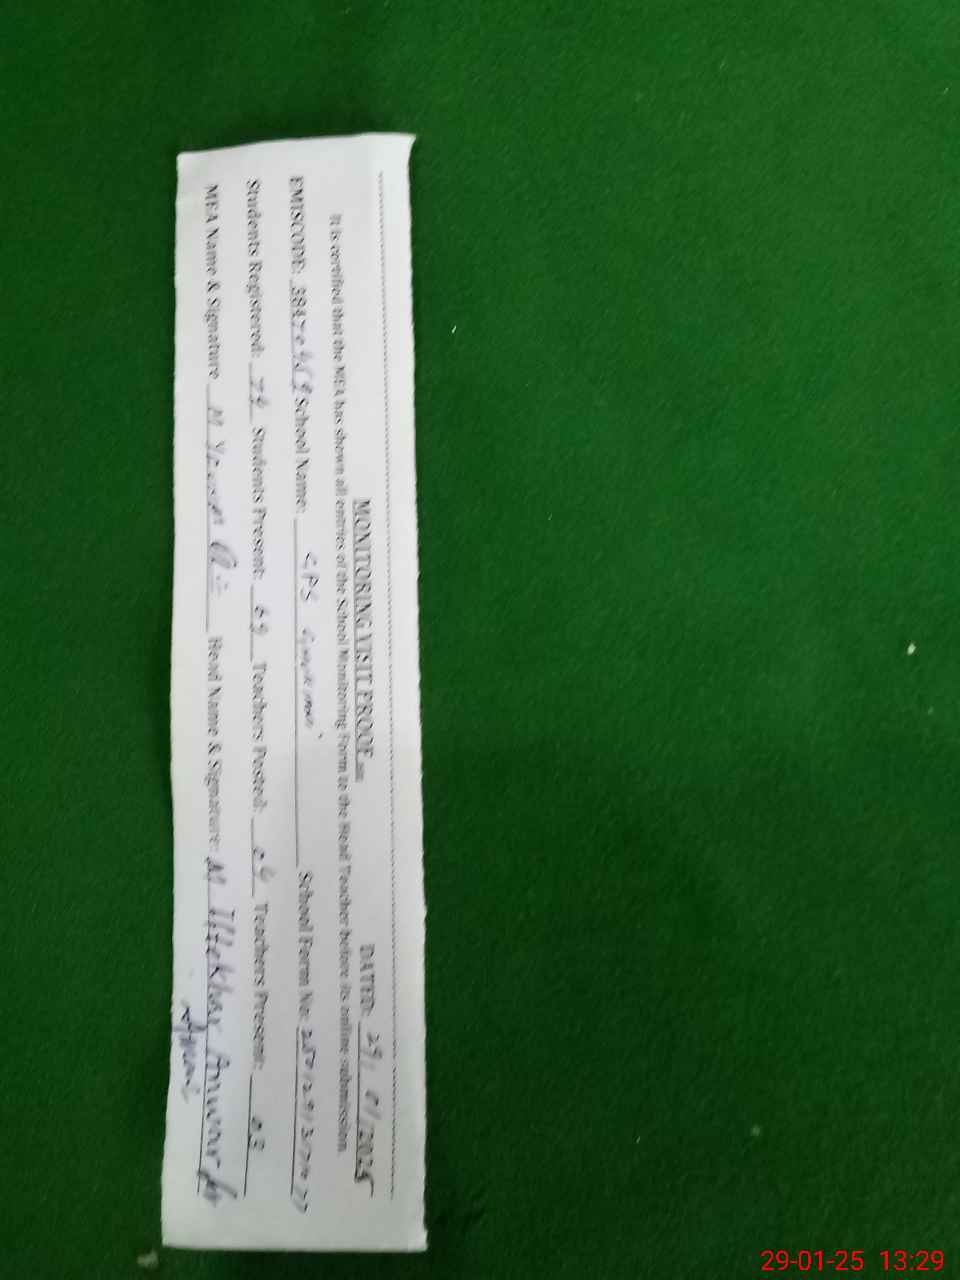 MONITORING VISIT PROOF DATED: 29/01/2025
It is certified that the MEA has shown all entries of the School Monitoring Form to the Head Teacher before its online submission.
EMISCODE: School Name: GPS School Form No:
Students Registered: 74 Students Present: 69 Teachers Posted: 04 Teachers Present: 03
MEA Name & Signature M Head Name & Signature: M Iftekhar Anwar
29-01-25 13:29